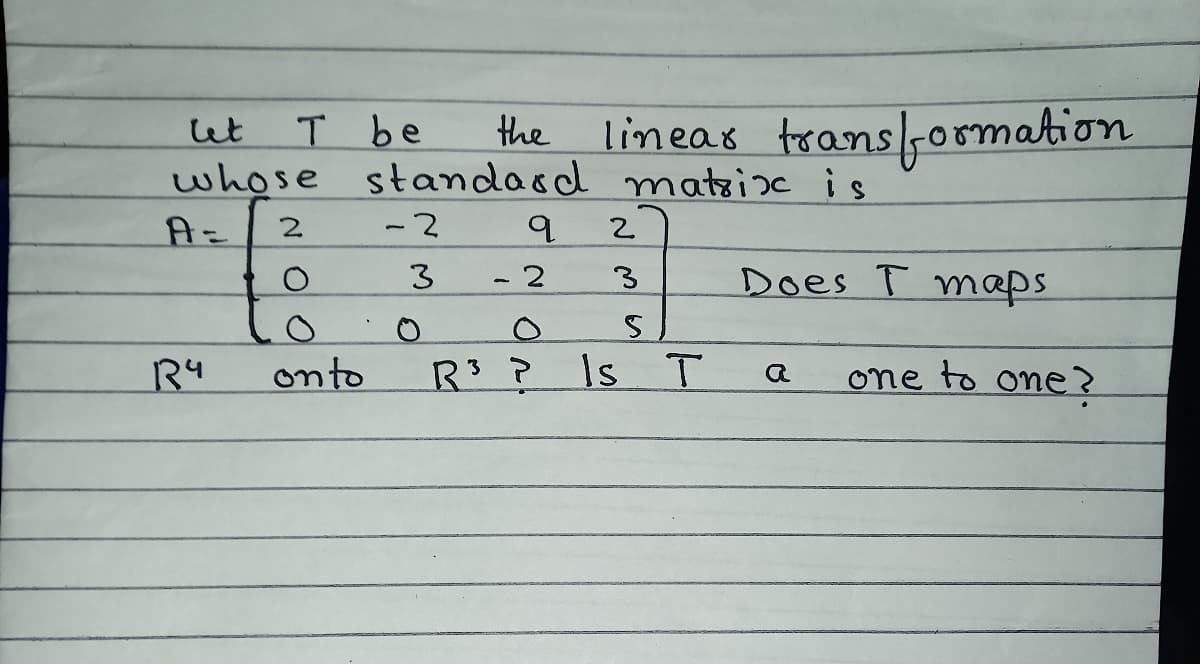 Let T be the linear transformation
whose standard matrix is
A = [ 2 -2 9 2
0 3 -2 3 Does T maps
0 0 0 5 ]
R⁴ onto R³ ? Is T a one to one?